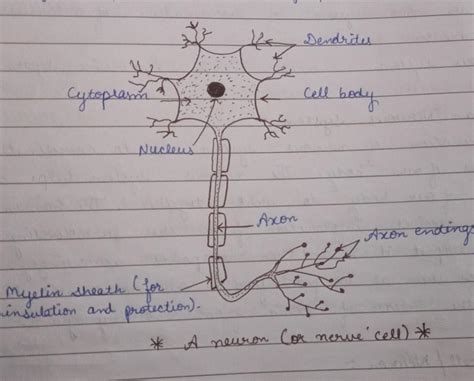 Dendrites
Cytoplasm
Cell body
Nucleus
Axon
Axon endings
Myelin sheath (for
insulation and protection).
* A neuron (or nerve cell) *